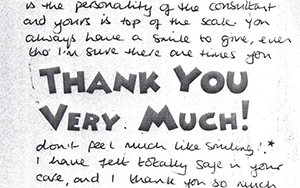 is the personality of the consultant
and yours is top of the scale. You
always have a smile to give, even
tho' I'm sure there are times you
THANK YOU
VERY MUCH!
don't feel much like smiling!*
I have felt totally safe in your
care, and I thank you so much